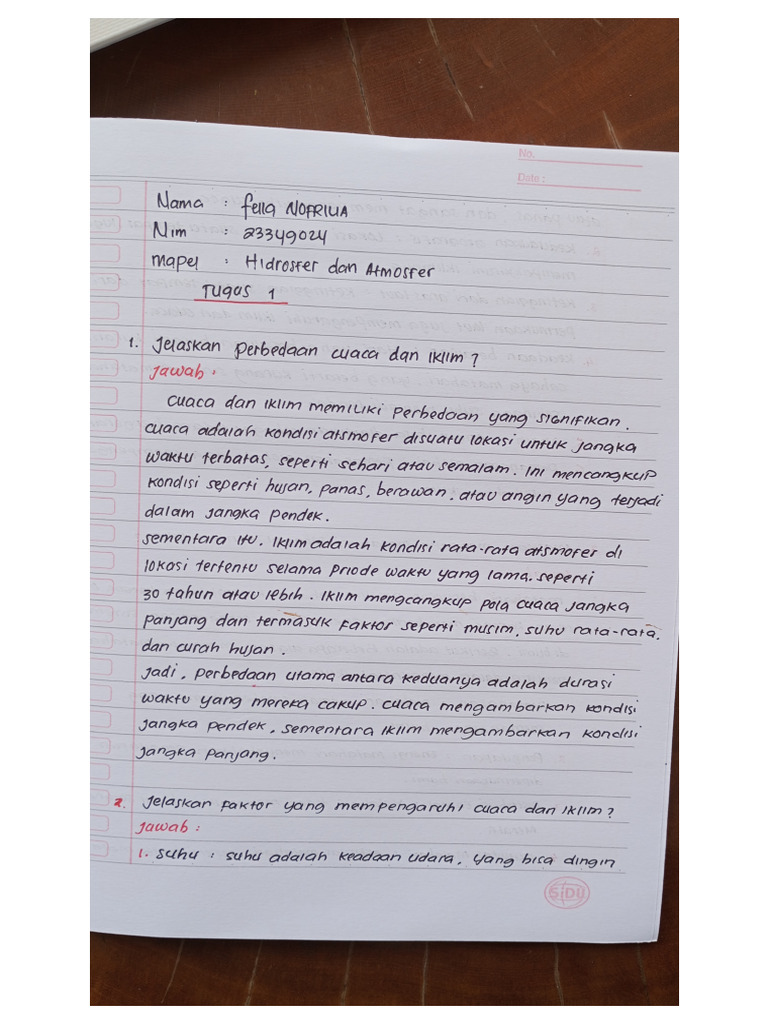 No.
Date :
Nama : fella NOFRILIA
Nim : 23349024
mapel : Hidrosfer dan Atmosfer
Tugas 1
1. Jelaskan perbedaan cuaca dan iklim ?
Jawab :
cuaca dan iklim memiliki perbedaan yang signifikan.
cuaca adalah kondisi atsmofer disuatu lokasi untuk jangka
waktu terbatas, seperti sehari atau semalam. Ini mencangkup
kondisi seperti hujan, panas, berawan, atau angin yang terjadi
dalam jangka pendek.
sementara itu. Iklim adalah kondisi rata-rata atsmofer di
lokasi tertentu selama priode waktu yang lama. seperti
30 tahun atau lebih. Iklim mengcangkup pola cuaca jangka
panjang dan termasuk faktor seperti musim, suhu rata-rata,
dan curah hujan.
jadi, perbedaan utama antara keduanya adalah durasi
waktu yang mereka cakup. cuaca mengambarkan kondisi
jangka pendek, sementara iklim mengambarkan kondisi
jangka panjang.
2. jelaskan faktor yang mempengaruhi cuaca dan iklim ?
Jawab :
1. suhu : suhu adalah keadaan udara, yang bisa dingin
SiDU